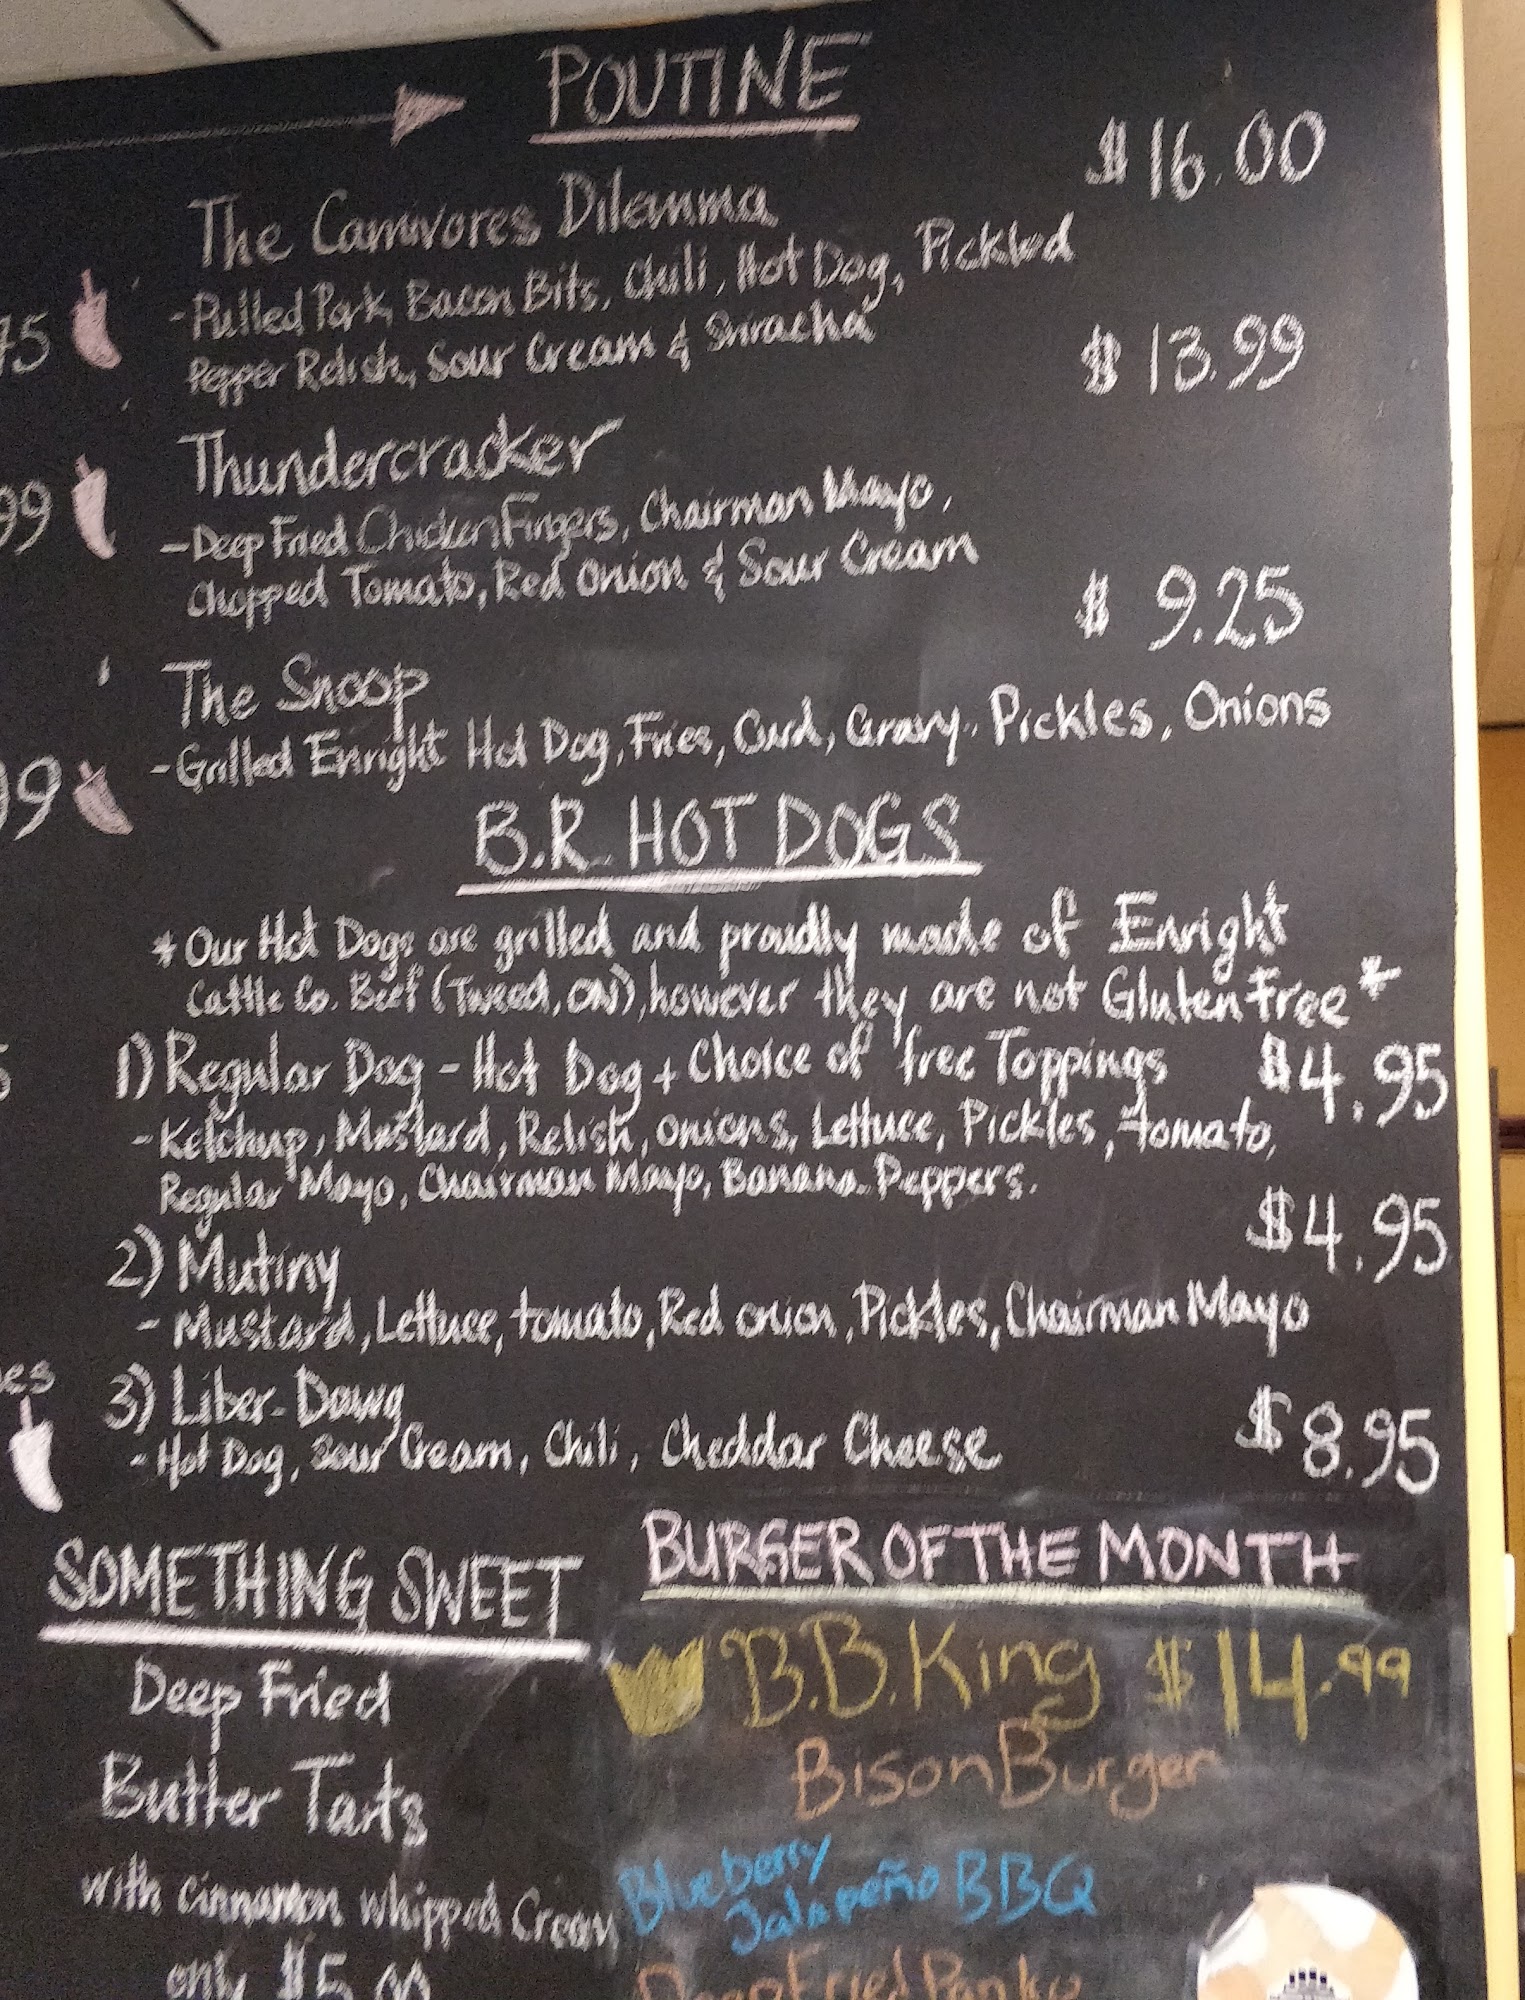 POUTINE
The Carnivores Dilemma $16.00
-Pulled Pork, Bacon Bits, Chili, Hot Dog, Pickled
Pepper Relish, Sour Cream & Sriracha
Thundercracker $13.99
-Deep Fried Chicken Fingers, Chairman Mayo,
Chopped Tomato, Red Onion & Sour Cream
The Snoop $9.25
-Grilled Enright Hot Dog, Fries, Curd, Gravy, Pickles, Onions
B.R. HOT DOGS
*Our Hot Dogs are grilled and proudly made of Enright
Cattle Co. Beef (Tweed, ON), however they are not Gluten Free*
1) Regular Dog - Hot Dog + Choice of free Toppings $4.95
-Ketchup, Mustard, Relish, onions, Lettuce, Pickles, tomato,
Regular Mayo, Chairman Mayo, Banana Peppers.
2) Mutiny $4.95
- Mustard, Lettuce, tomato, Red onion, Pickles, Chairman Mayo
3) Liber-Dawg $8.95
- Hot Dog, Sour Cream, Chili, Cheddar Cheese
SOMETHING SWEET
Deep Fried
Butter Tarts
with cinnamon whipped Cream
only $5.00
BURGER OF THE MONTH
B.B. King $14.99
Bison Burger
Blueberry
Jalapeño BBQ
Deep Fried Panko
75
99
99
es